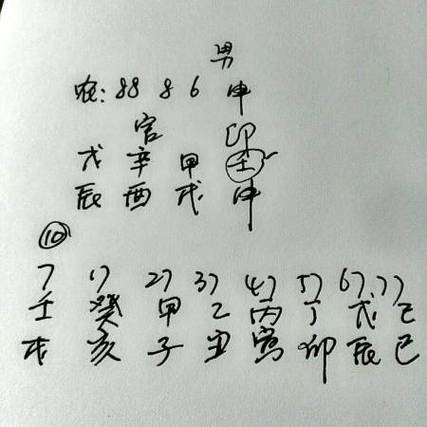 男
农: 88 8 6 申
官 印
戊 辛 甲 壬
辰 酉 戌 申
10
7 17 27 37 47 57 67 77
壬 癸 甲 乙 丙 丁 戊 己
戌 亥 子 丑 寅 卯 辰 巳